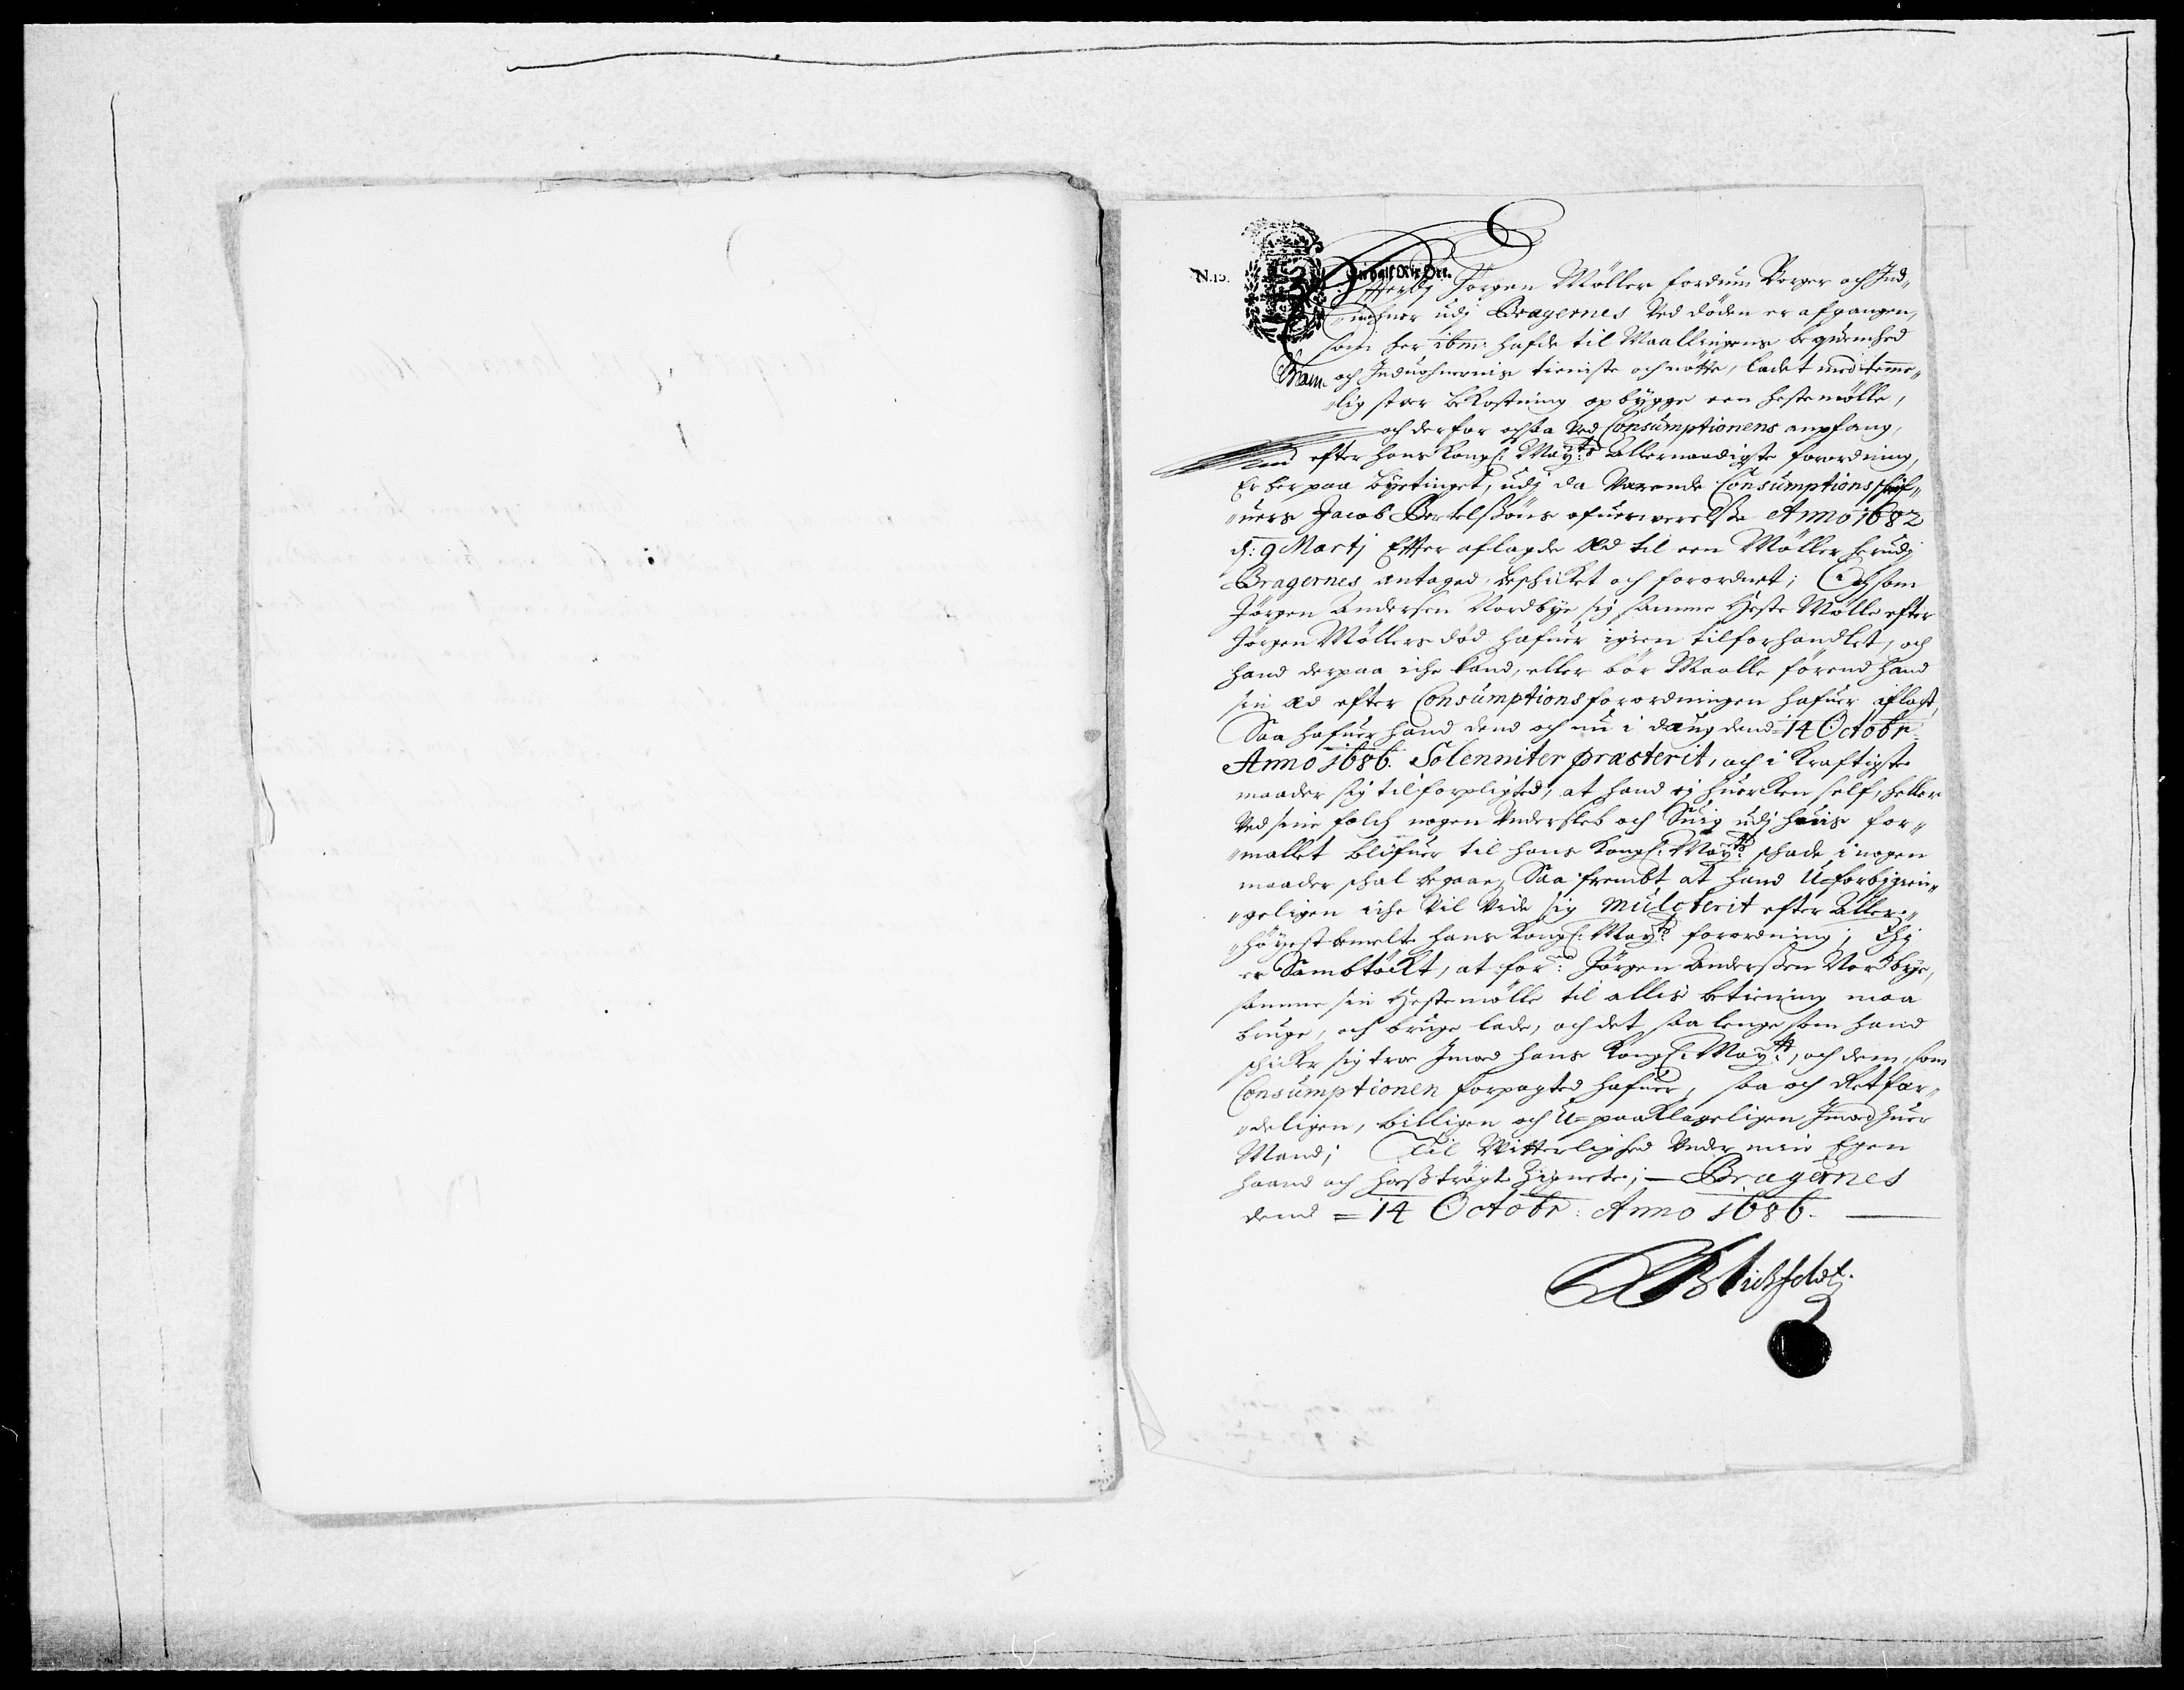 N.15.
En halff Rix Ort.
Efterdj Jörgen Möller fordum Borger och Ind„
„vohner udj Bragernes Ved döden er afgangen,
som her ibm: hafde til Maallingens beqvemhed
och Induohnernis tieniste och nötte, ladet med temme„
„lig stoer bekostning opbygge een hestemölle,
och derfor ochsaa Ved Consumptionens anpfang,
efter hans Kongl: May:ts Allernaadigste forordning,
Er her paa byetinget, udj da Værende Consumptions schrif„
„uers Jacob Bertelßöns ofuerverelße Anno 1682
d: 9 Martj Effter aflagde Æd til een Möller herudj
Bragernes antaged, beschicket och forordnet; Och som
Jörgen Andersen Nordbye sig samme Heste Mölle efter
Jörgen Möllers död hafuer igien tilforhandlet, och
hand derpaa iche kand, eller bör Maalle förend hand
sin Æd efter Consumptions forordningen hafuer aflagt,
Saa hafuer hand dend och nu i daug dend 14 Octobr
Anno 1686. Solenniter præsterit, och i kraftigste
maader sig tilforpligted, at hand ej huercken self, heller
Ved sine folch nogen Undersleb och Suig udj huis for„
„mallet blifuer til hans Kongl: May:ts schade i nogen
maader schal begaae, Saa frembt at hand U-forbigien„
„geligen iche Vil Vide sig mulcterit efter Aller„
„höyestbemelte hans Kongl: May:ts forordning; Thj
er Sambtöckt, at for: Jörgen Anderßen Nordbye,
samme sin Hestemölle til allis betiening maa
bruge, och bruge lade, och det saa lenge som hand
schicker sig troe Jmod hans Kongl: May:tt, och dem, som
Consumptionen forpagted hafuer, saa och Retfær„
„deligen, billigen och U-paaklageligen Jmod huer
Mand; Til Witterlighed Under min Egen
haand och hoßtrögte Zignete; Bragernes
dend 14 Octobr: Anno 1686.
Blichfeldt.